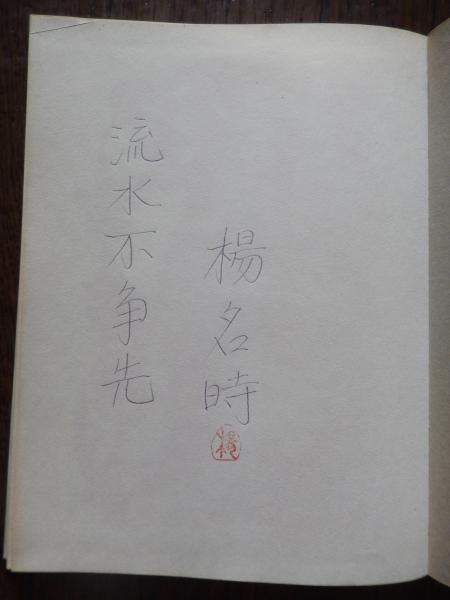 流水不争先
楊名時
楊